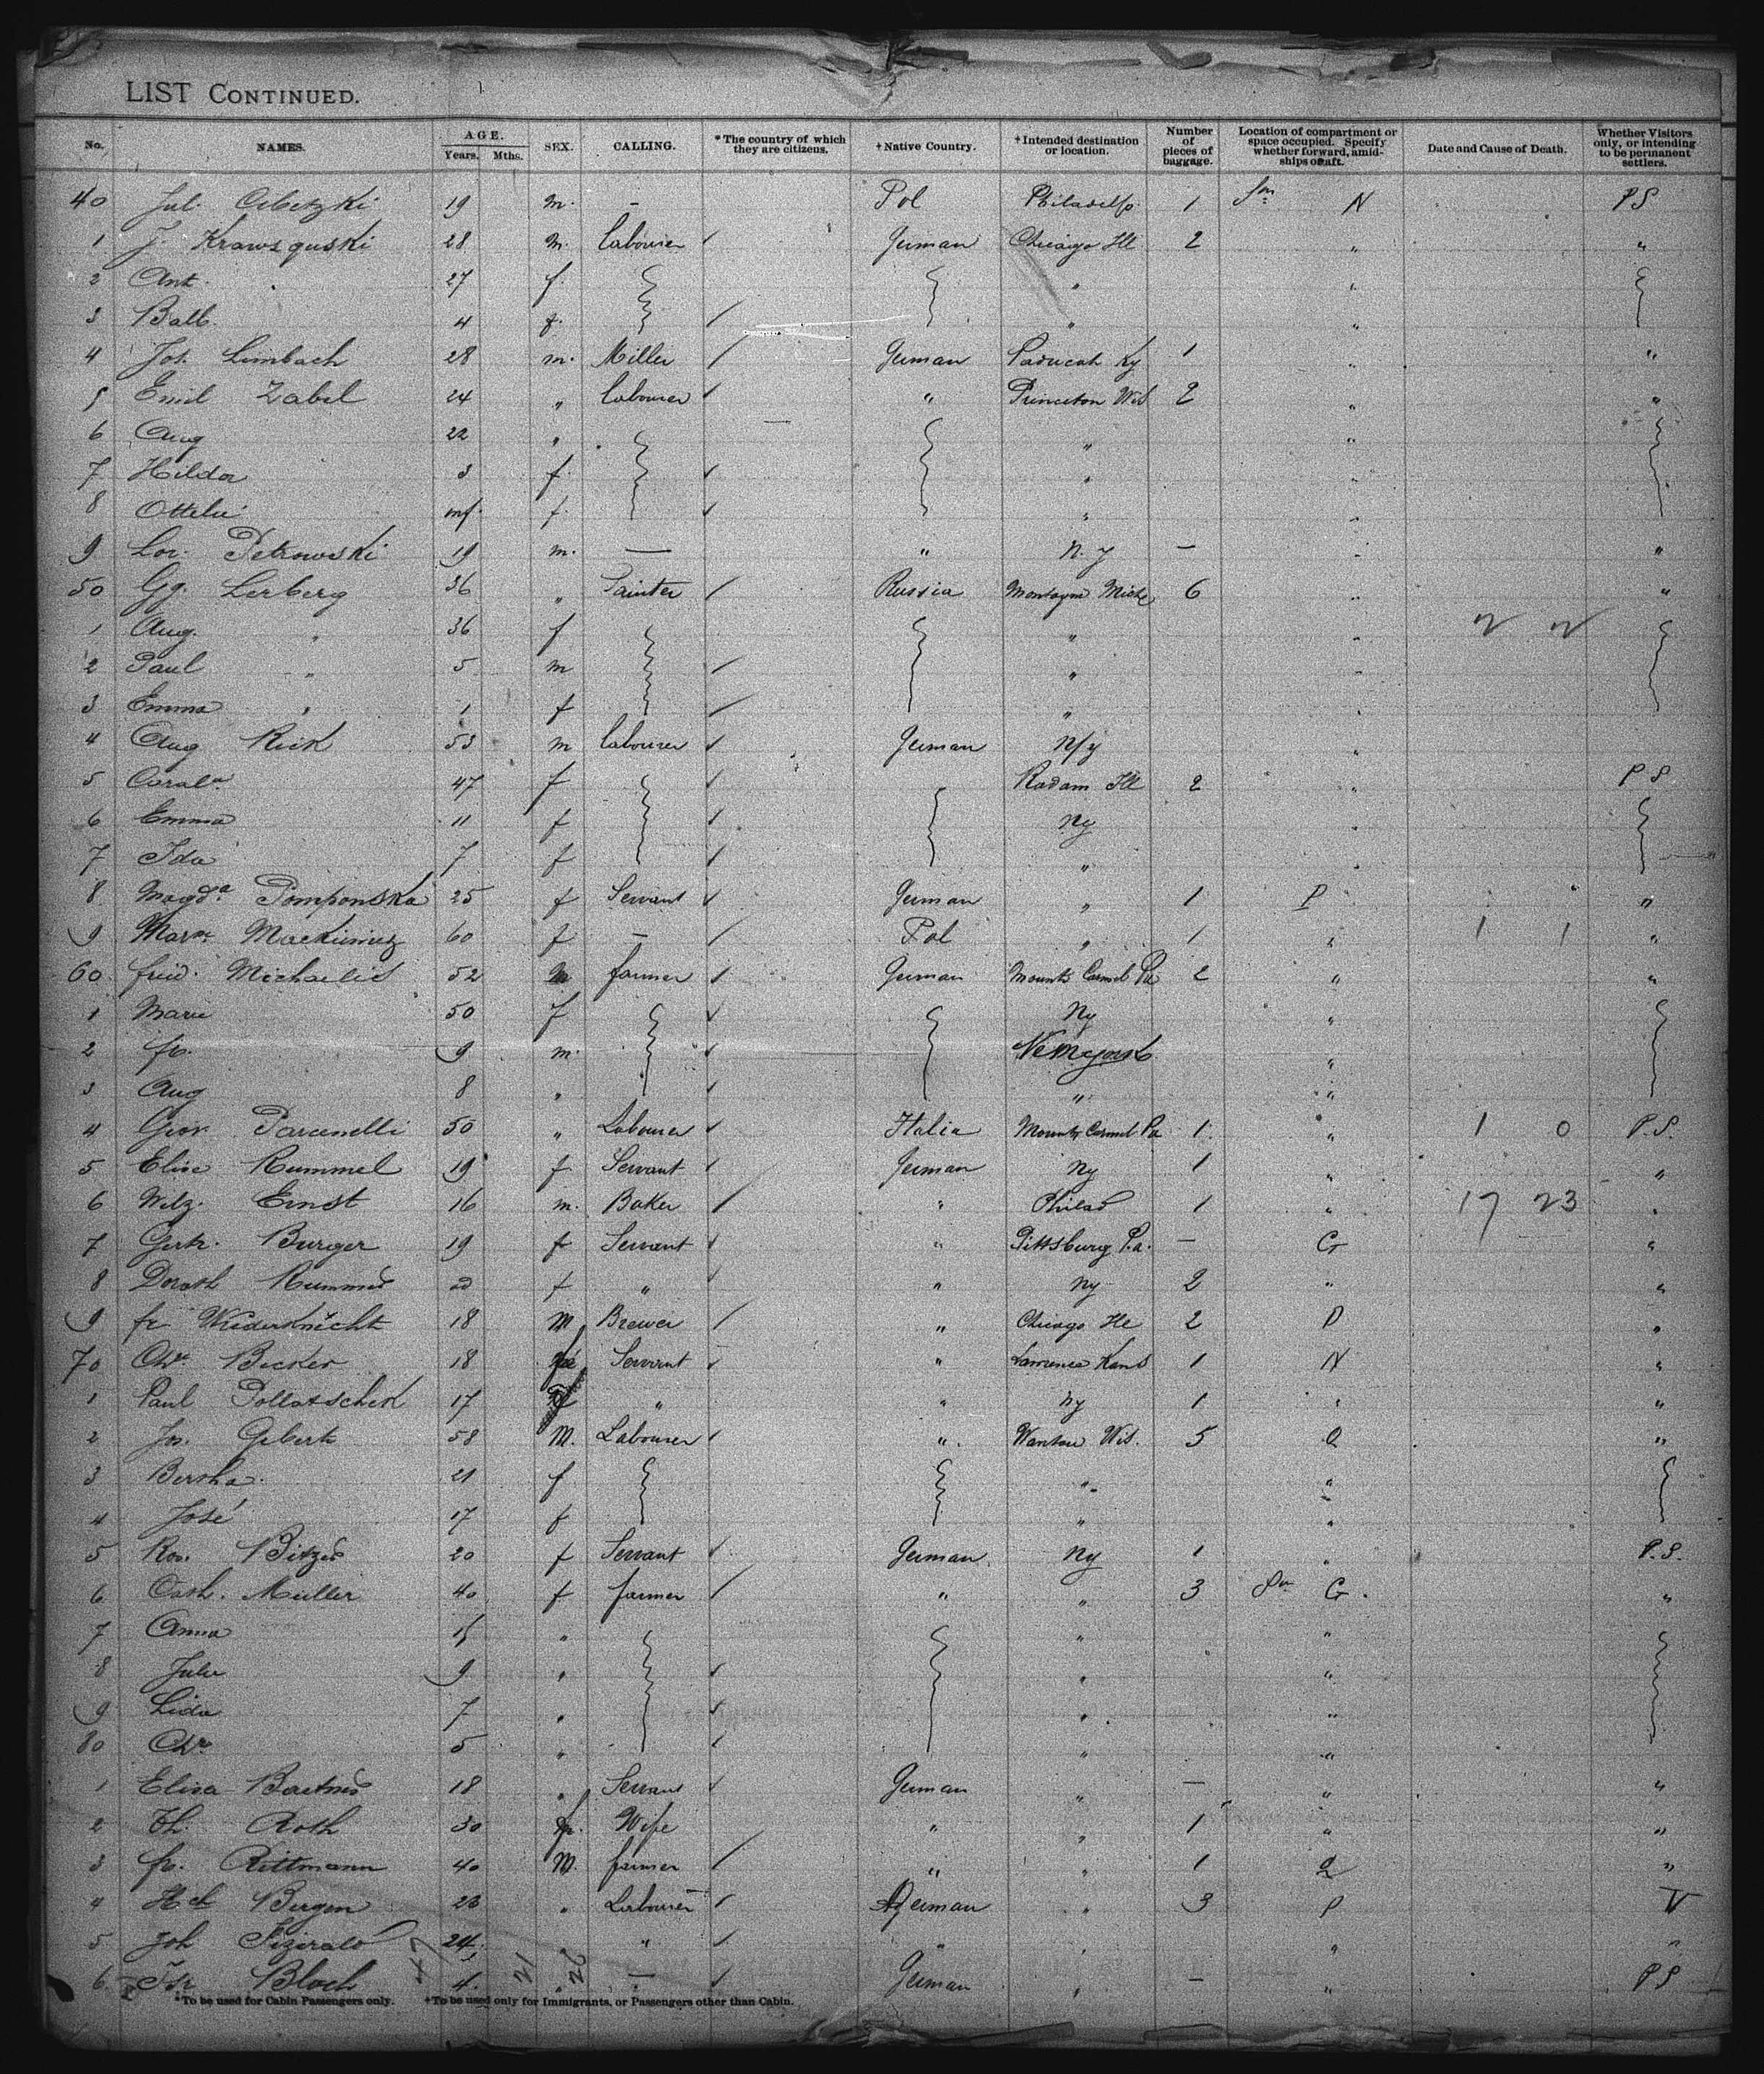 LIST CONTINUED.
No. NAMES. AGE. Years. Mths. SEX. CALLING. *The country of which they are citizens. +Native Country. +Intended destination or location. Number of pieces of baggage. Location of compartment or space occupied. Specify whether forward, amidships or aft. Date and Cause of Death. Whether Visitors only, or intending to be permanent settlers.
40 Jul. 19 m. - Pol Philadelp. 1 N PS
1 J. 28 m. labourer German Chicago Ill 2 " "
2 Ant. 27 f. " "
3 Balb. 4 f. " "
4 Jos. Limbach 28 m. Miller German Paducah Ky 1 " "
5 Emil Zabel 24 " labourer " Princeton Wis 2 " "
6 Aug 22 " " "
7 Hilda 3 f " "
8 Ottilie inf. f. " "
9 Lor. Petrowski 19 m. — " N. Y — " "
50 Gg. Lerberg 36 " Painter Russia Mich 6 " "
1 Aug. " 36 f " " 2 2
2 Paul " 5 m " "
3 Emma " 1 f " "
4 Aug Rick 53 m labourer German N/y "
5 47 f Radam Ill 2 " P S
6 Emma 11 f Ny "
7 Ida 7 f " "
8 Magd.a Pomponska 25 f Servant German " 1 P "
9 60 f - Pol " 1 " 1 1 "
60 fried. Michaelis 52 m farmer German Mount Carmel Pa 2 " "
1 Marie 50 f Ny "
2 fr. 9 m. "
3 Aug 8 " " "
4 Giov. 50 " Labourer Italia Mount Carmel Pa 1 " 1 0 P.S.
5 Elise Rummel 19 f Servant German Ny 1 " "
6 Ernst 16 m. Baker " Philad 1 " 17 23 "
7 Gertr. Burger 19 f Servant " Pittsburg Pa. — G "
8 Doroth 20 f " " Ny 2 " "
9 fr 18 M Brewer " Chicago Ill 2 P "
70 Chr. Becker 18 Servant " Lawrence Kans 1 N "
1 Paul Pollatschek 17 " " Ny 1 " "
2 Jos. Gebert 58 M. Labourer " Wis. 5 Q "
3 Bertha 21 f " "
4 José 17 f " "
5 Ros. 20 f Servant German Ny 1 " P.S.
6 Cath. Müller 40 f farmer " " 3 G. "
7 Anna " " "
8 Julie 9 " " "
9 Lida 7 " " "
80 Chr 5 " " "
1 Elisa 18 " Servant German " — " "
2 Th. Roth 30 f. Wife " " 1 " "
3 fr. Rittmann 40 M. farmer " " 1 Q "
4 Hch Bergen " Labourer German " 3 P V
5 Joh 24 " " " " " "
6 Bloch 4 " — German " — " P S
47 21 26
*To be used for Cabin Passengers only. +To be used only for Immigrants, or Passengers other than Cabin.